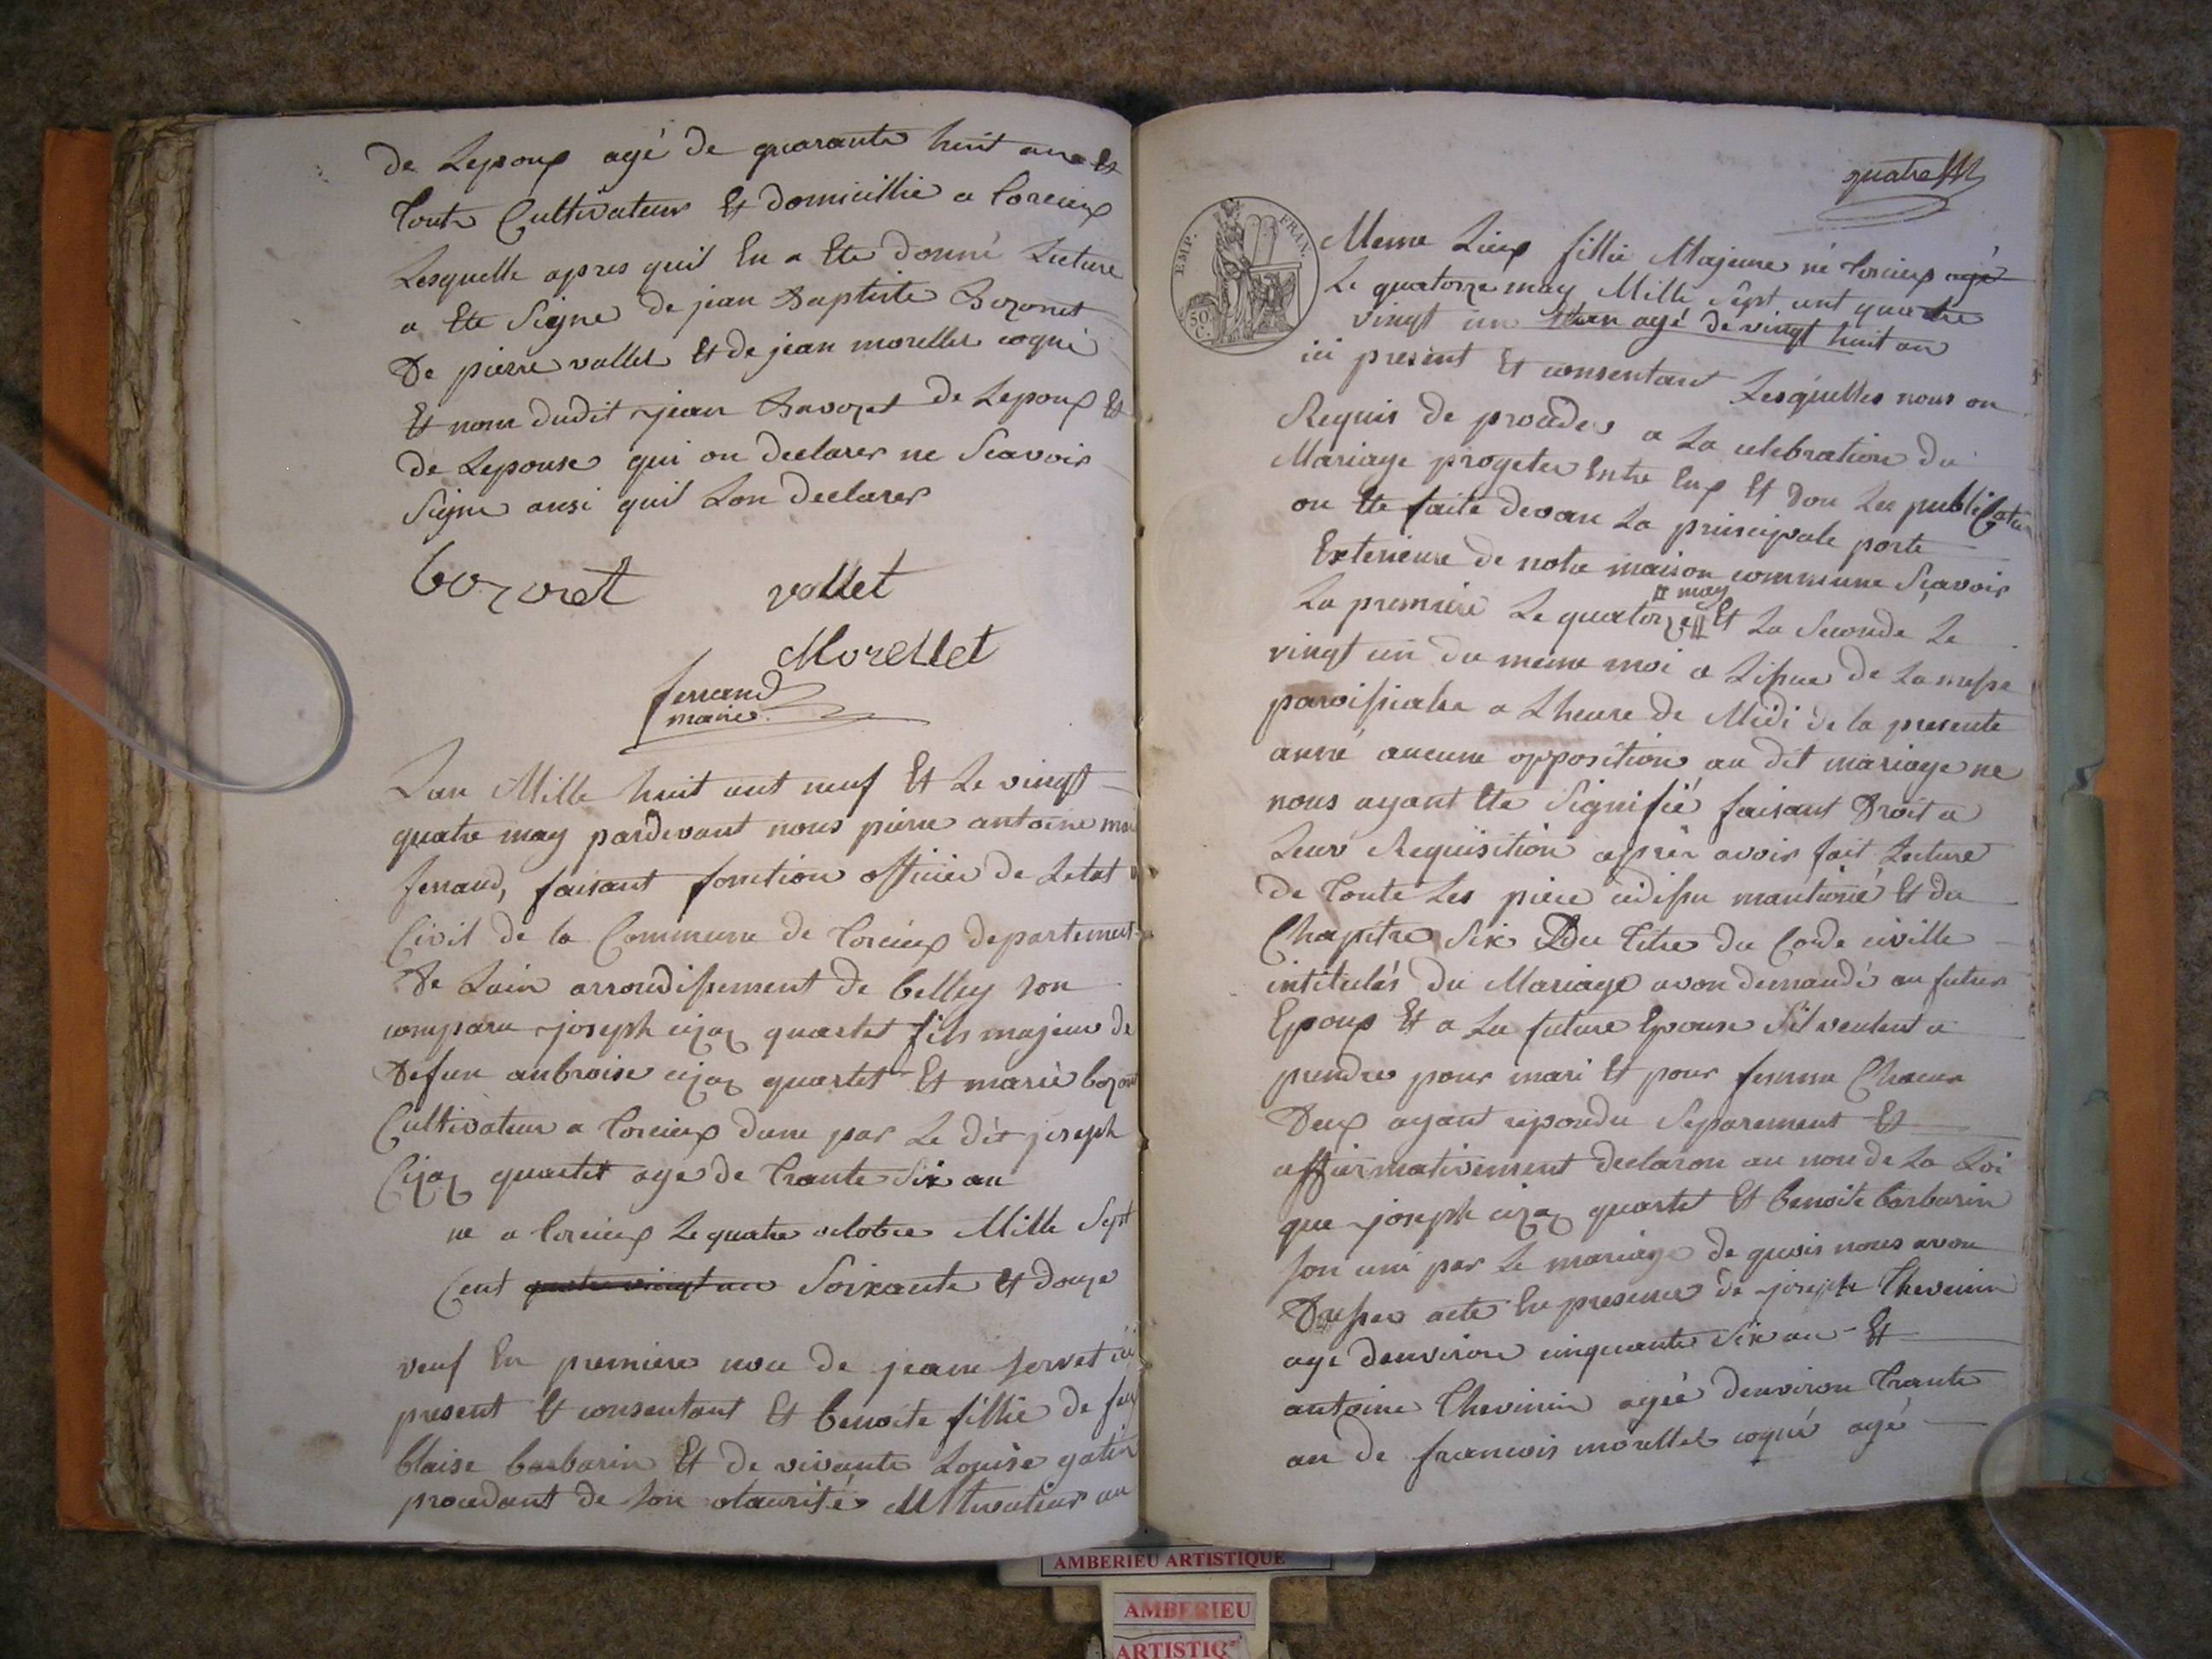 de Lepoux agé de quarante huit ans Et
Tout Cultivateur Et domicillie a torcieux
Lesquelle apres quil En a Ete donné Lecture
a Ete Signe de jean Baptiste Bozonet
De pierre vallet Et de jean morellet coqué
Et nom dudit jean Bavozet de Lepoux Et
de Lepouse qui on declarer ne Scavoir
Signe ansi quil Lon declarer
bozonet vallet
Morellet
ferrand
maire
Lan Mille huit cent neuf Et Le vingt
quatre may pardevant nous pierre antoine
ferrand, faisant fonction officier de Letat
Civil de la Commune de torcieux departement
De Lain arrondissement de belley son
comparu joseph cizaz quartet fils majeur de
Defun anbroise cizaz quartet Et marie bozon
Cultivateur a torcieux dune par Le dit joseph
Cizaz quartet age de trante Six an
ne a torcieux Le quatre octobre Mille Sept
Cent quatre vingt un Soixante Et douze
veuf En premiere noce de jeanne servet ici
present Et consentant Et benoite fillie de feu
blaise barbarin Et de vivante Louise gatin
procedant de son otaurité Cultivateur au
quatre
EMP. FRAN.
50 C.
Meme Lieux fillie Majeure né torcieux agé
Le quatorze may Mille Sept cent quatre
vingt un agé de vingt huit an
ici present Et consentant Lesquelles nous on
Requis de proceder a La celebration du
Mariage progeter Entre Eux Et don Les publication
on Ete faite devan La principale porte
Exterieure de notre maison commune Scavoir
may
La premiere Le quatorze Et La Seconde Le
vingt un du meme moi a Lissue de La messe
paroissialle a Lheure de Midi de la presente
anné aucune opposition au dit mariage ne
nous ayant Ete Signifié faisant Droit a
Leur Requisition apres avoir fait Lecture
de toute Les piece cidissu mantioné Et du
Chapitre Six Du titre du Code civille
intitulés du Mariage avon demandé au futur
Epoux Et a La future Epouse Sil veulent a
prendre pour mari Et pour femme Chacun
Deux ayant repondu Separement Et
affirmativement declaron au non de La Loi
que joseph cizaz quartet Et benoite barbarin
son uni par Le mariage de quois nous avon
Dresser acte En presence de joseph thevenin
age denviron cinquante Six an Et
antoine thevenin agée denviron trante
an de francois morellet coqué agé
AMBERIEU ARTISTIQUE
AMBERIEU
ARTISTIQ